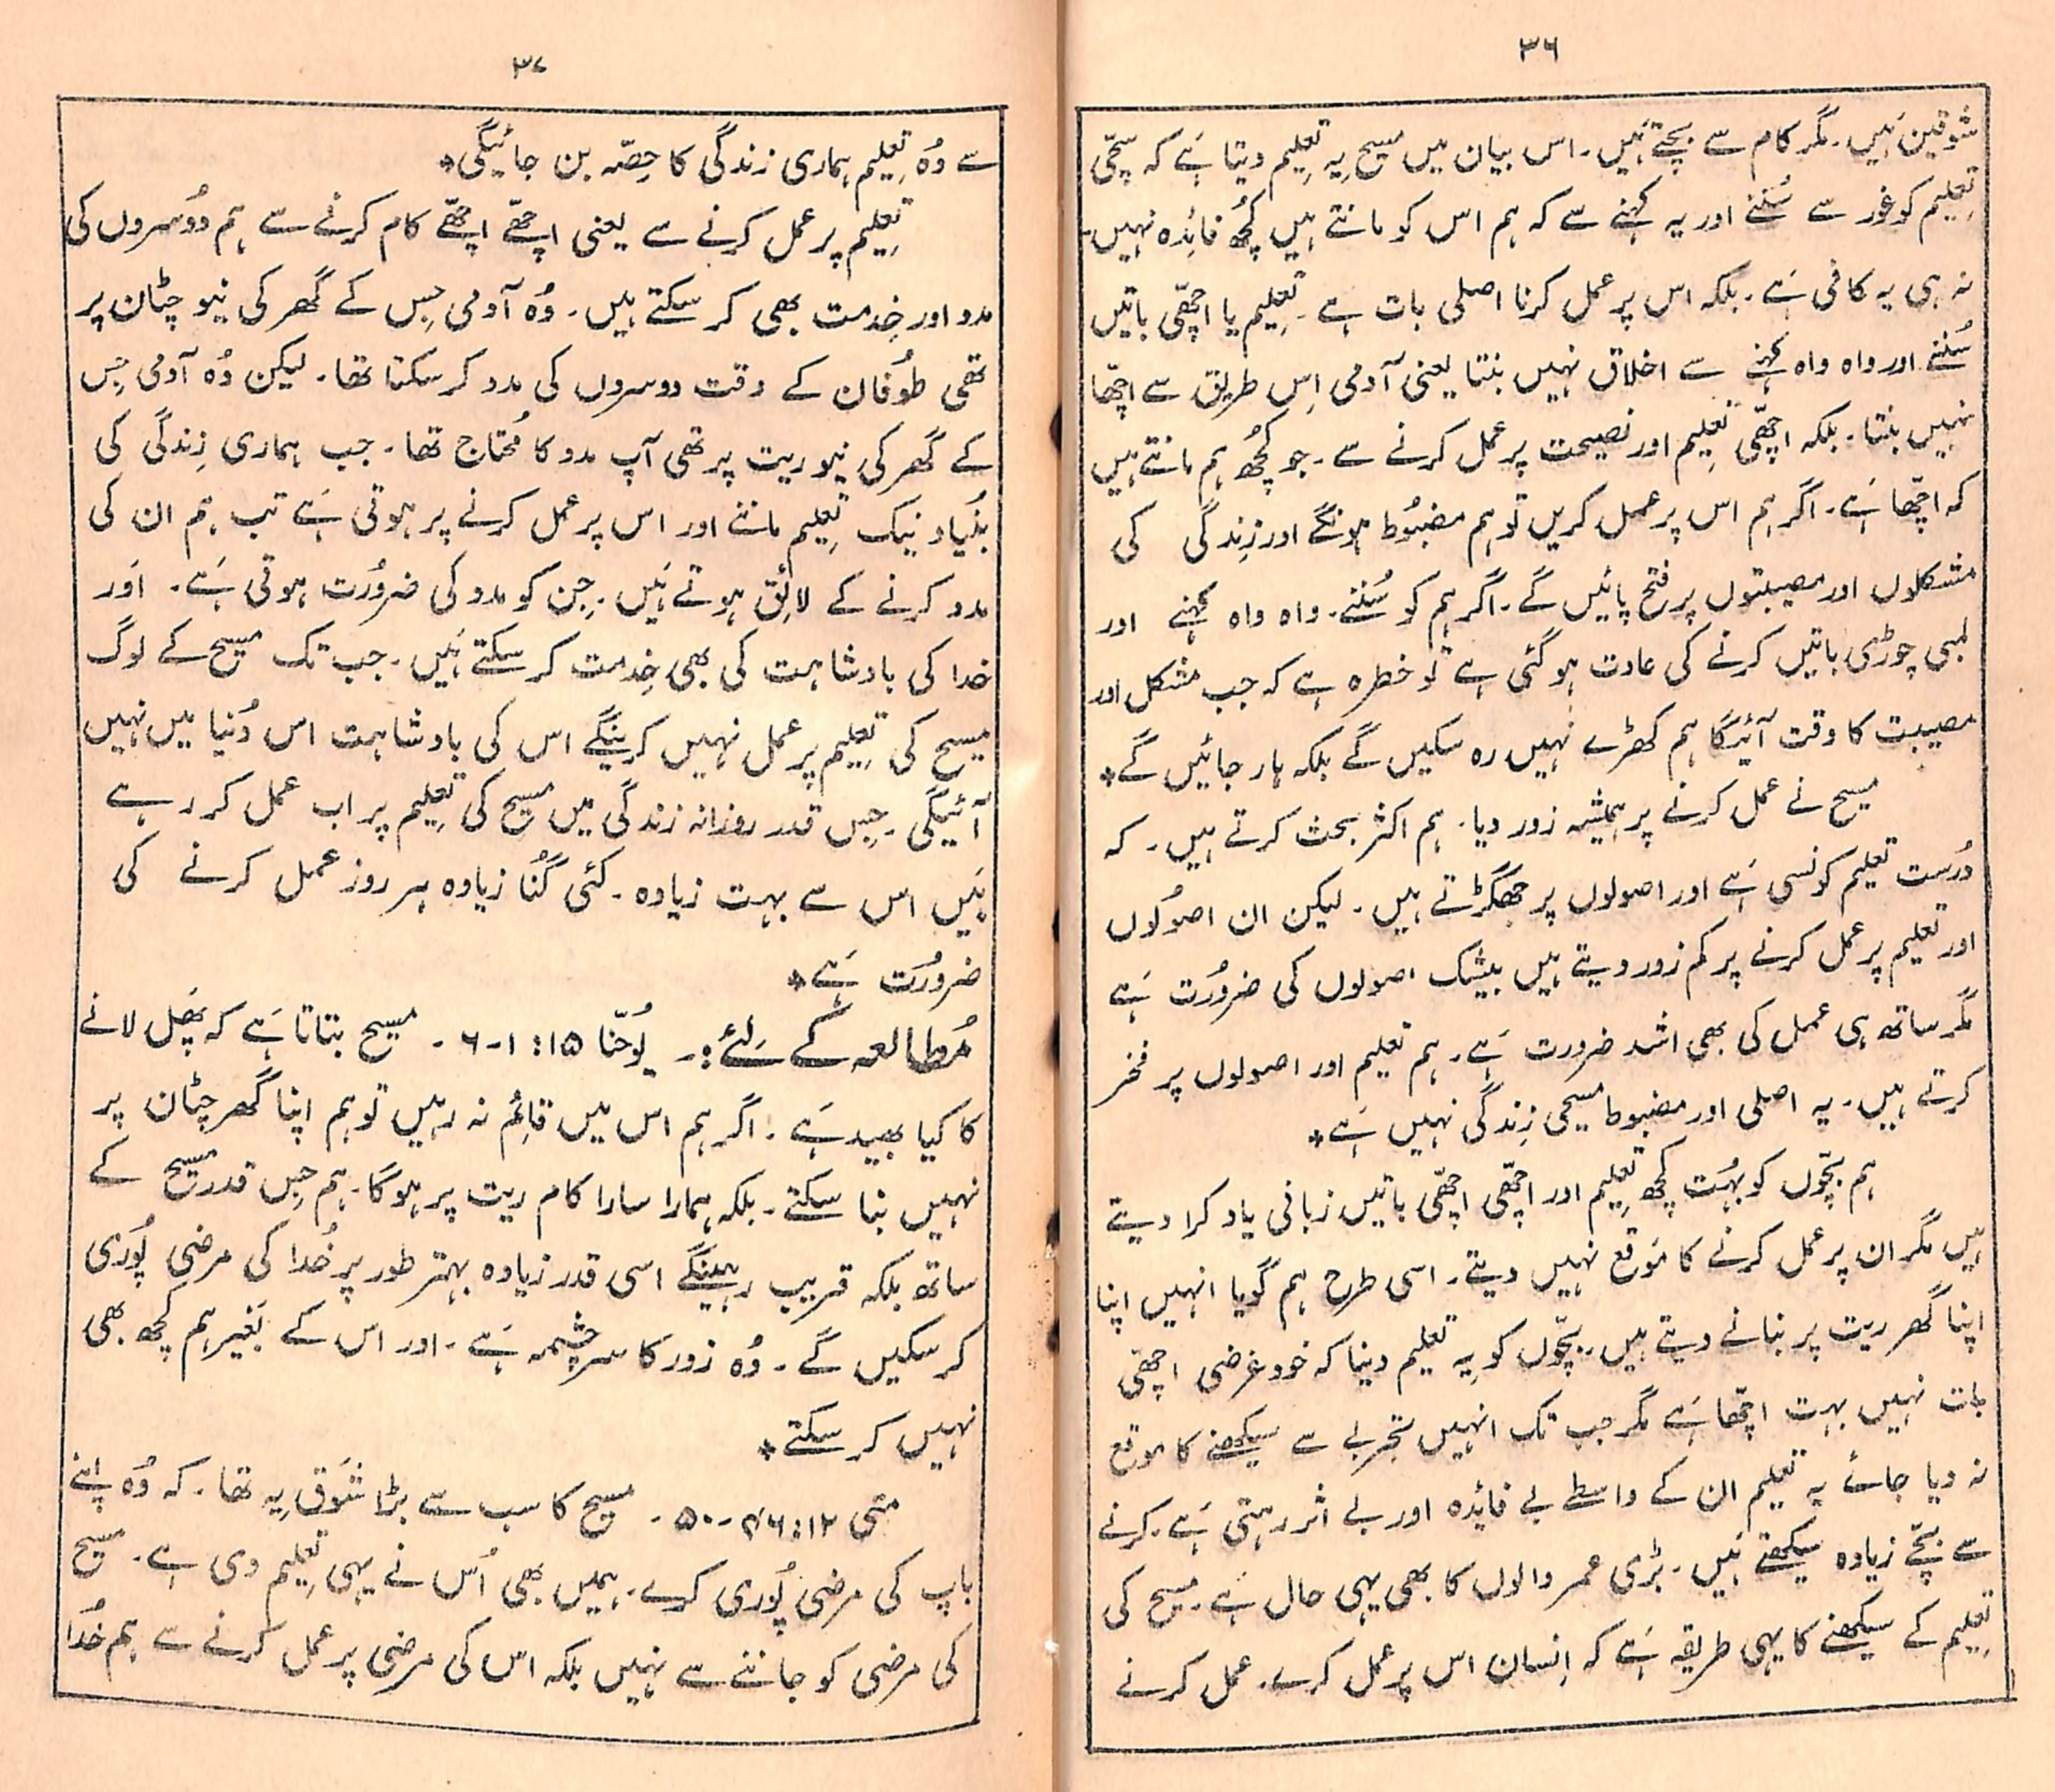 ۳۶
شوقین ہَیں۔ مگر کام سے بچتے ہَیں۔ اس بیان میں مسیح یِہ تعلِیم دیتا ہَے کہ سچّی
تعلِیم کو غور سے سُننے اور یہ کہنے سے کہ ہم اس کو مانتے ہیں کچُھ فائِدہ نہیں۔
نہ ہی یہ کافی ہَے۔ بلکہ اس پر عمل کرنا اصلی بات ہے۔ تعلِیم یا اچھّی باتیں
سُننے اور واہ واہ کہنے سے اخلاق نہیں بنتا یعنی آدمی اِس طریق سے اچھّا
نہیں بنتا۔ بلکہ اچھّی تعلِیم اور نصیحت پر عمل کرنے سے۔ جو کچُھ ہم مانتے ہیں
کہ اچھّا ہَے۔ اگر ہم اس پر عمل کریں تو ہم مضبُوط ہونگے اور زِندگی کی
مشکلوں اور مصیبتوں پر فتح پائیں گے۔ اگر ہم کو سُننے۔ واہ واہ کہنے اور
لمبی چوڑی باتیں کرنے کی عادت ہو گئی ہے تو خطرہ ہے کہ جب مشکل اور
مصیبت کا وقت آئیگا ہم کھڑے نہیں رہ سکیں گے بلکہ ہار جائیں گے*
مسیح نے عمل کرنے پر ہمیشہ زور دیا۔ ہم اکثر بحث کرتے ہیں۔ کہ
دُرست تعلیم کونسی ہَے اور اصولوں پر جھگڑتے ہیں۔ لیکن ان اصُولوں
اور تعلیم پر عمل کرنے پر کم زور دیتے ہیں بیشک اصولوں کی ضرُورت ہَے
مگر ساتھ ہی عمل کی بھی اشد ضرورت ہَے۔ ہم تعلیم اور اصولوں پر فخر
کرتے ہیں۔ یہ اصلی اور مضبوط مسیحی زِندگی نہیں ہَے*
ہم بچّوں کو بہُت کچھ تعلِیم اور اچھّی اچھّی باتیں زبانی یاد کرا دیتے
ہیں مگر ان پر عمل کرنے کا مَوقع نہیں دیتے۔ اسی طرح ہم گویا انہیں اپنا
اپنا گھر ریت پر بنانے دیتے ہیں۔ بچّوں کو یِہ تعلیم دینا کہ خود غرضی اچھّی
بات نہیں بہت اچھّا ہَے مگر جب تک انہیں تجربے سے سیکھنے کا موقع
نہ دیا جائے یہ تعلیم ان کے واسطے بے فائدہ اور بے اثر رہتی ہَے۔ کرنے
سے بچّے زیادہ سیکھتے ہَیں۔ بڑی عمر والوں کا بھی یہی حال ہَے۔ مسیح کی
تعلِیم کے سیکھنے کا یہی طریقہ ہَے کہ اِنسان اس پر عمل کرے۔ عمل کرنے
۳۷
سے وُہ تعلِیم ہماری زندگی کا حِصّہ بن جائیگی*
تعلِیم پر عمل کرنے سے یعنی اچھّے اچھّے کام کرنے سے ہم دوُسروں کی
مدد اور خِدمت بھی کر سکتے ہیں۔ وُہ آدمی جِس کے گھر کی نیو چٹان پر
تھی طُوفان کے وقت دوسروں کی مدد کر سکتا تھا۔ لیکن وُہ آدمی جِس
کے گھر کی نیو ریت پر تھی آپ مدد کا مُحتاج تھا۔ جب ہماری زِندگی کی
بنُیاد نیک تعلِیم ماننے اور اس پر عمل کرنے پر ہوتی ہَے تب ہم ان کی
مدد کرنے کے لائِق ہوتے ہَیں۔ جِن کو مدد کی ضرُورت ہوتی ہَے۔ اَور
خدا کی بادشاہت کی بھی خِدمت کر سکتے ہَیں۔ جب تک مسیح کے لوگ
مسیح کی تعلِیم پر عمل نہیں کرینگے اس کی بادشاہت اس دُنیا میں نہیں
آئیگی۔ جِس قدر روزانہ زندگی میں مسیح کی تعلِیم پر اب عمل کر رہے
ہَیں اس سے بہت زیادہ۔ کئی گُنا زیادہ ہر روز عمل کرنے کی
ضرورُت ہَے*
مُطالعہ کے لئے:۔ یُوحنّا ۱۵: ۱-۶۔ مسیح بتاتا ہَے کہ پھَل لانے
کا کیا بھید ہَے۔ اگر ہم اس میں قائِم نہ رہیں تو ہم اپنا گھر چٹان پر
نہیں بنا سکتے۔ بلکہ ہمارا سارا کام ریت پر ہوگا۔ ہم جِس قدر مسیح کے
ساتھ بلکہ قریب رہینگے اسی قدر زیادہ بہتر طور پر خُدا کی مرضی پُوری
کر سکیں گے۔ وُہ زور کا سرچشمہ ہَے۔ اور اس کے بَغیر ہم کچھ بھی
نہیں کر سکتے*
متی ۱۲: ۴۶-۵۰۔ مسیح کا سب سے بڑا شَوق یِہ تھا۔ کہ وُہ اپنے
باپ کی مرضی پُوری کرے۔ ہمیں بھی اُس نے یہی تعلِیم دی ہے۔ مسیح
کی مرضی کو جاننے سے نہیں بلکہ اس کی مرضی پر عمل کرنے سے ہم خُدا